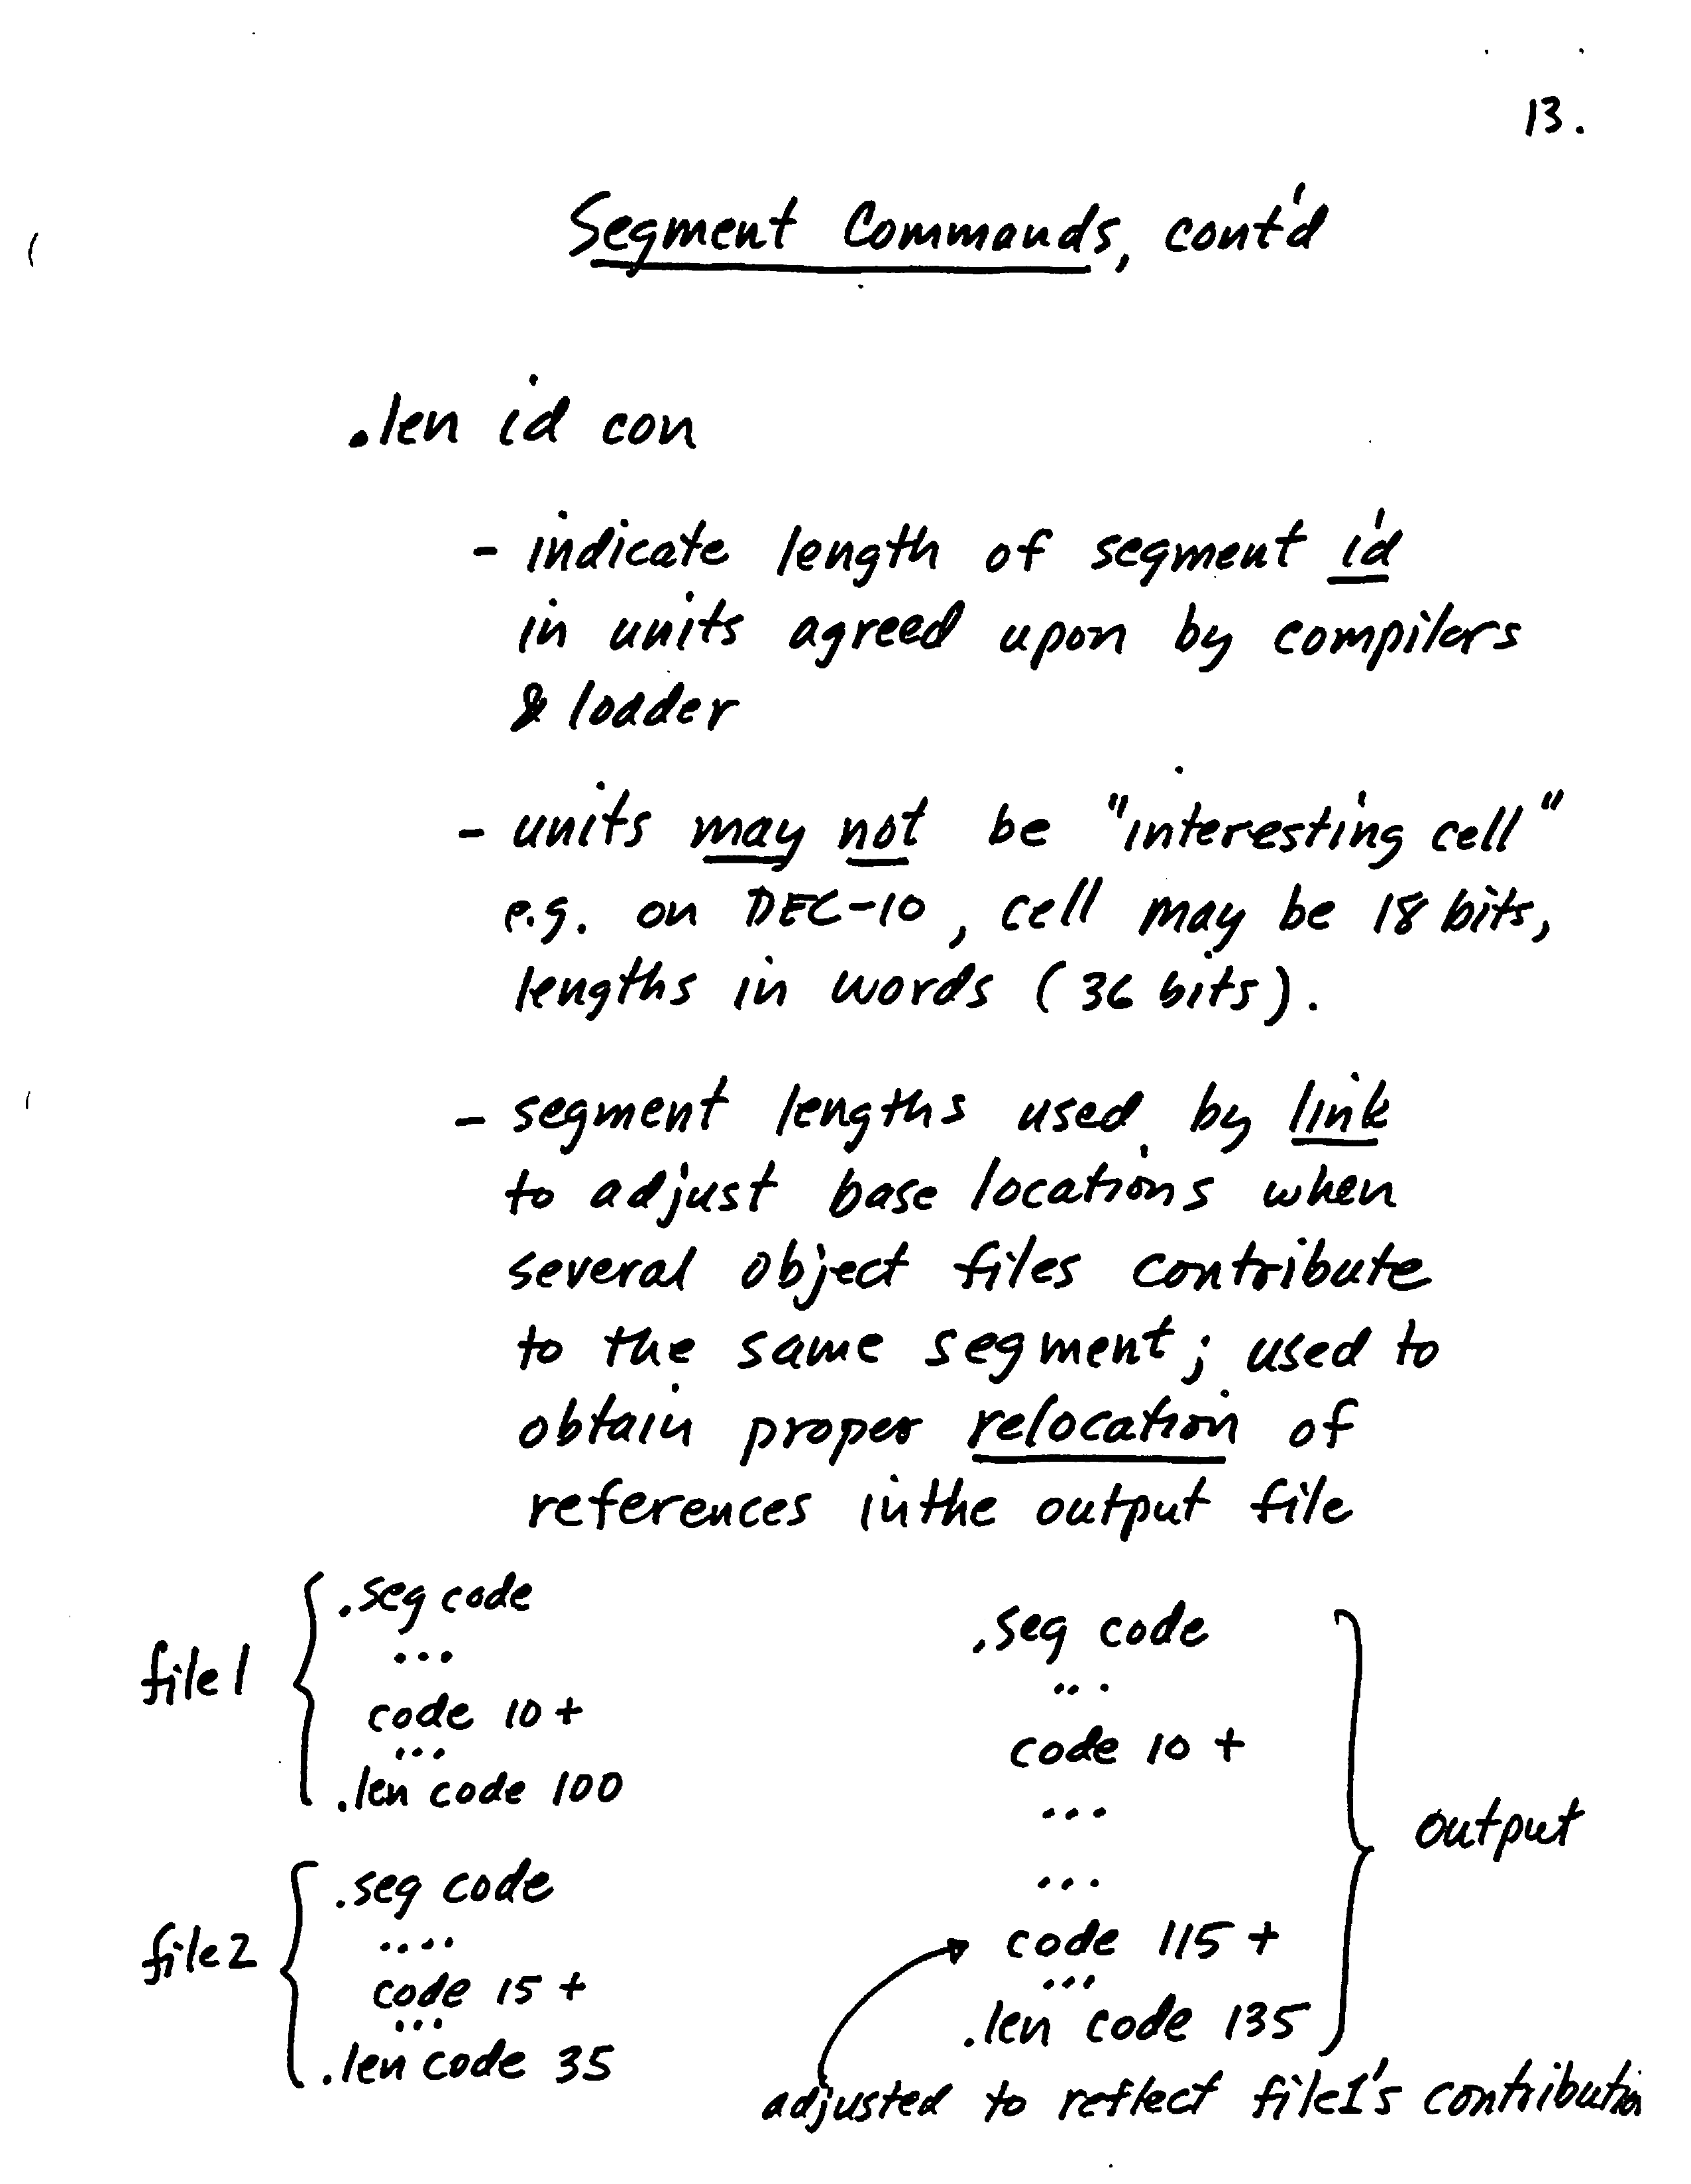 13.
Segment Commands, cont'd
.len id con
- indicate length of segment id
in units agreed upon by compilers
& loader
- units may not be "interesting cell"
e.g. on DEC-10, cell may be 18 bits,
lengths in words (36 bits).
- segment lengths used by link
to adjust base locations when
several object files contribute
to the same segment; used to
obtain proper relocation of
references in the output file
file1
.seg code
...
code 10 +
...
.len code 100
file2
.seg code
....
code 15 +
...
.len code 35
.seg code
...
code 10 +
...
...
code 115 +
...
.len code 135
output
adjusted to reflect file1's contribution